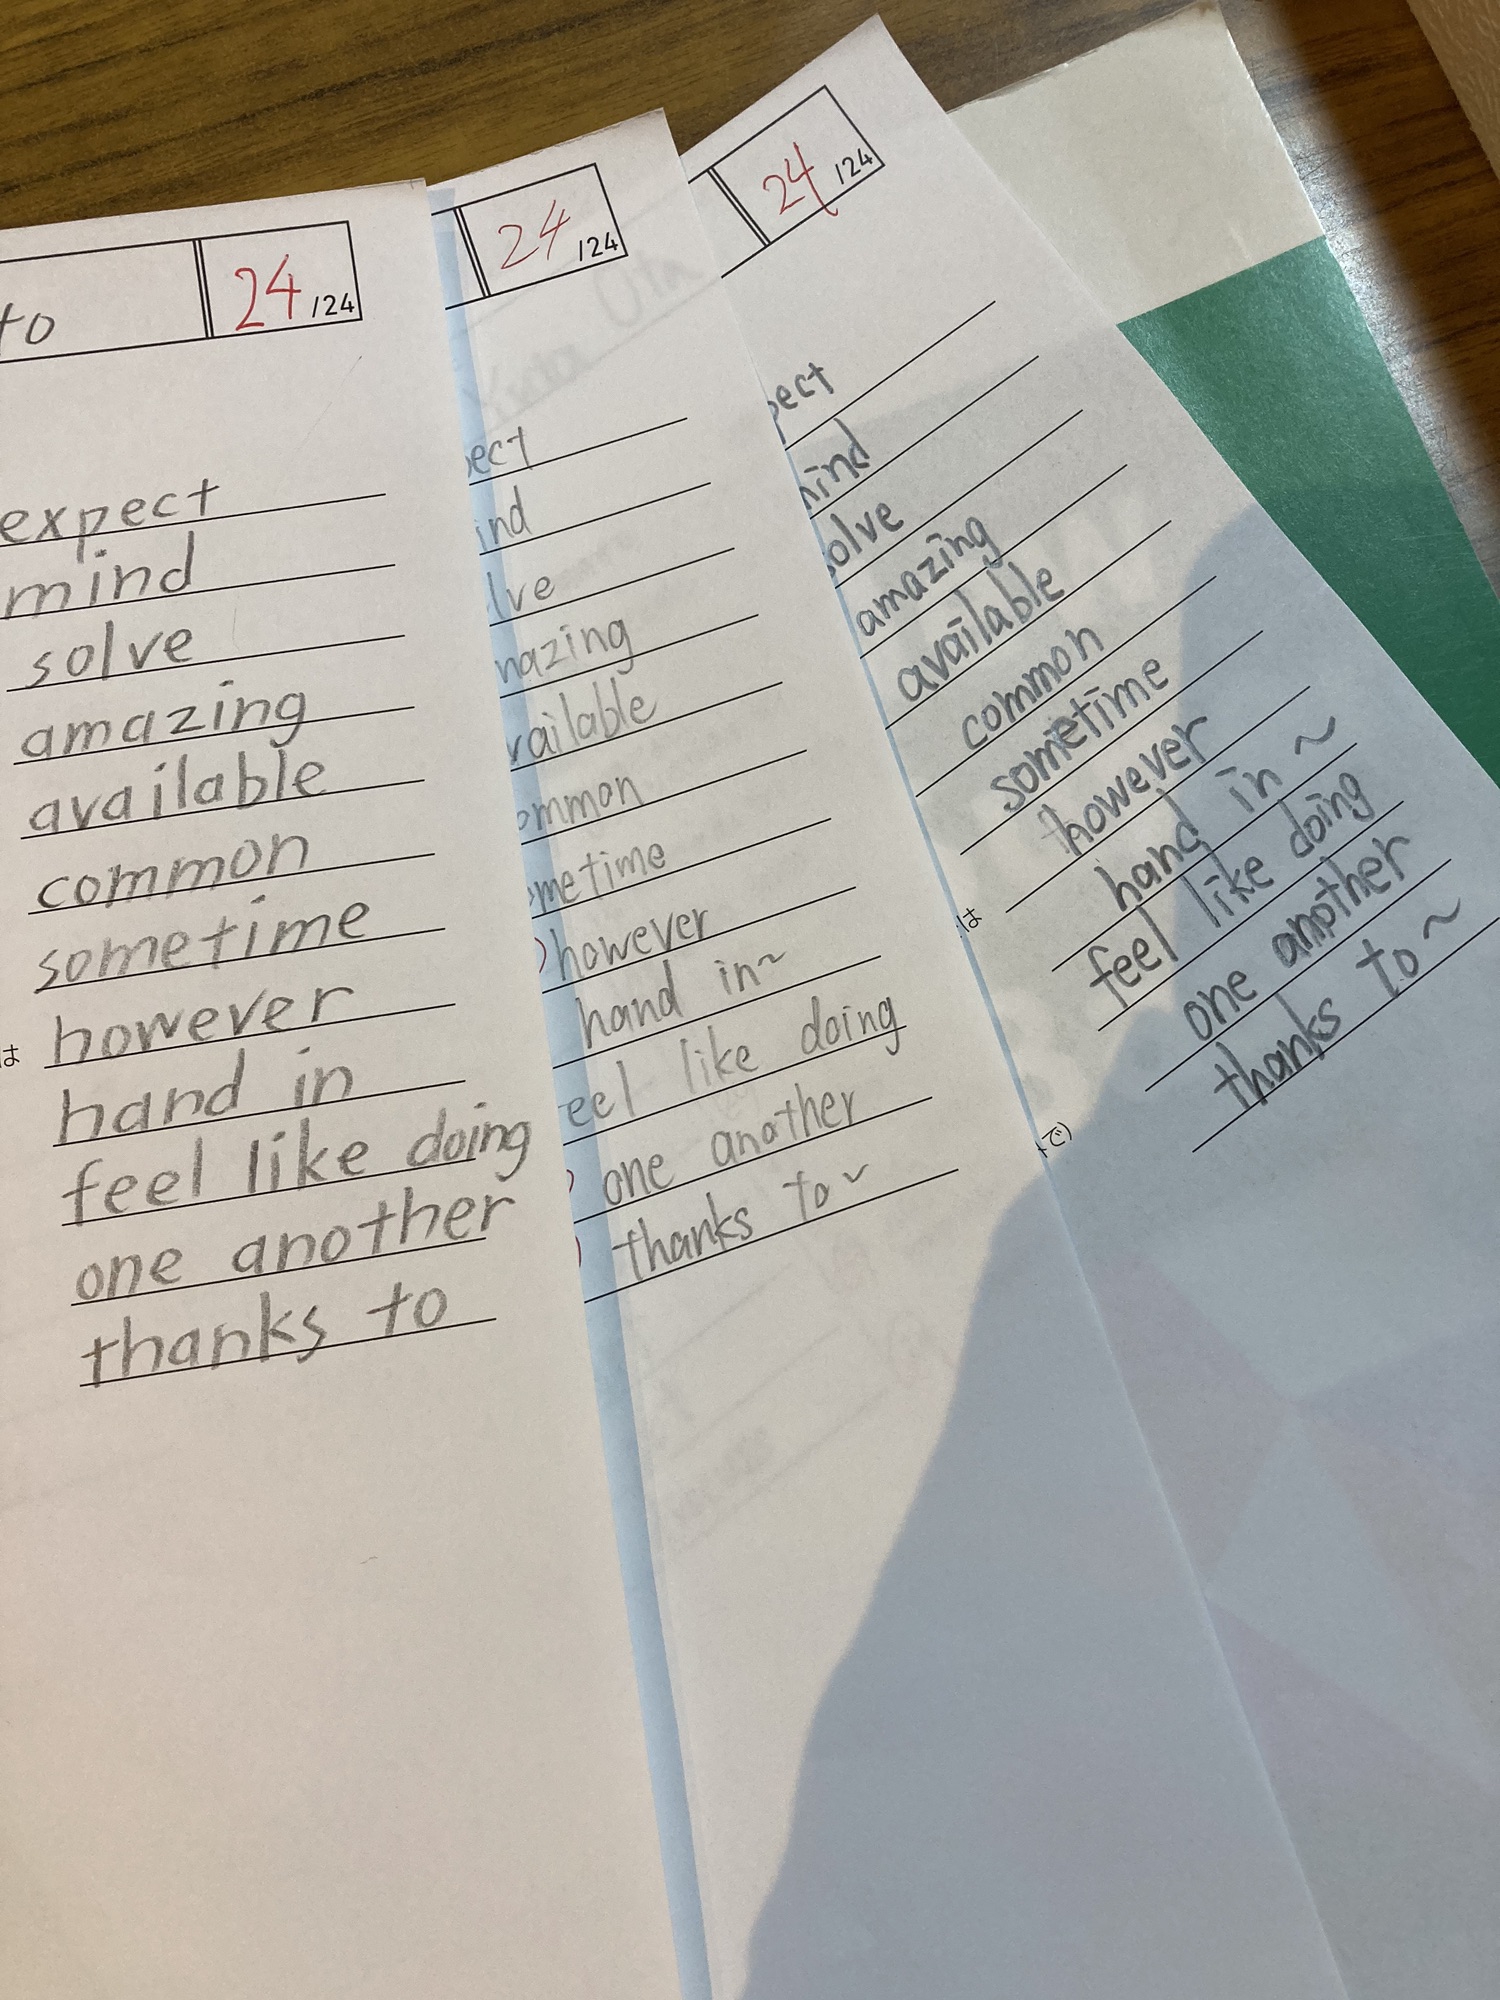 to
24 /24
expect
mind
solve
amazing
available
common
sometime
は however
hand in
feel like doing
one another
thanks to
24 /24
ect
ind
lve
mazing
vailable
ommon
ometime
however
hand in~
eel like doing
one another
thanks to~
24 /24
pect
mind
solve
amazing
available
common
sometime
は however
hand in ~
feel like doing
one another
で) thanks to ~